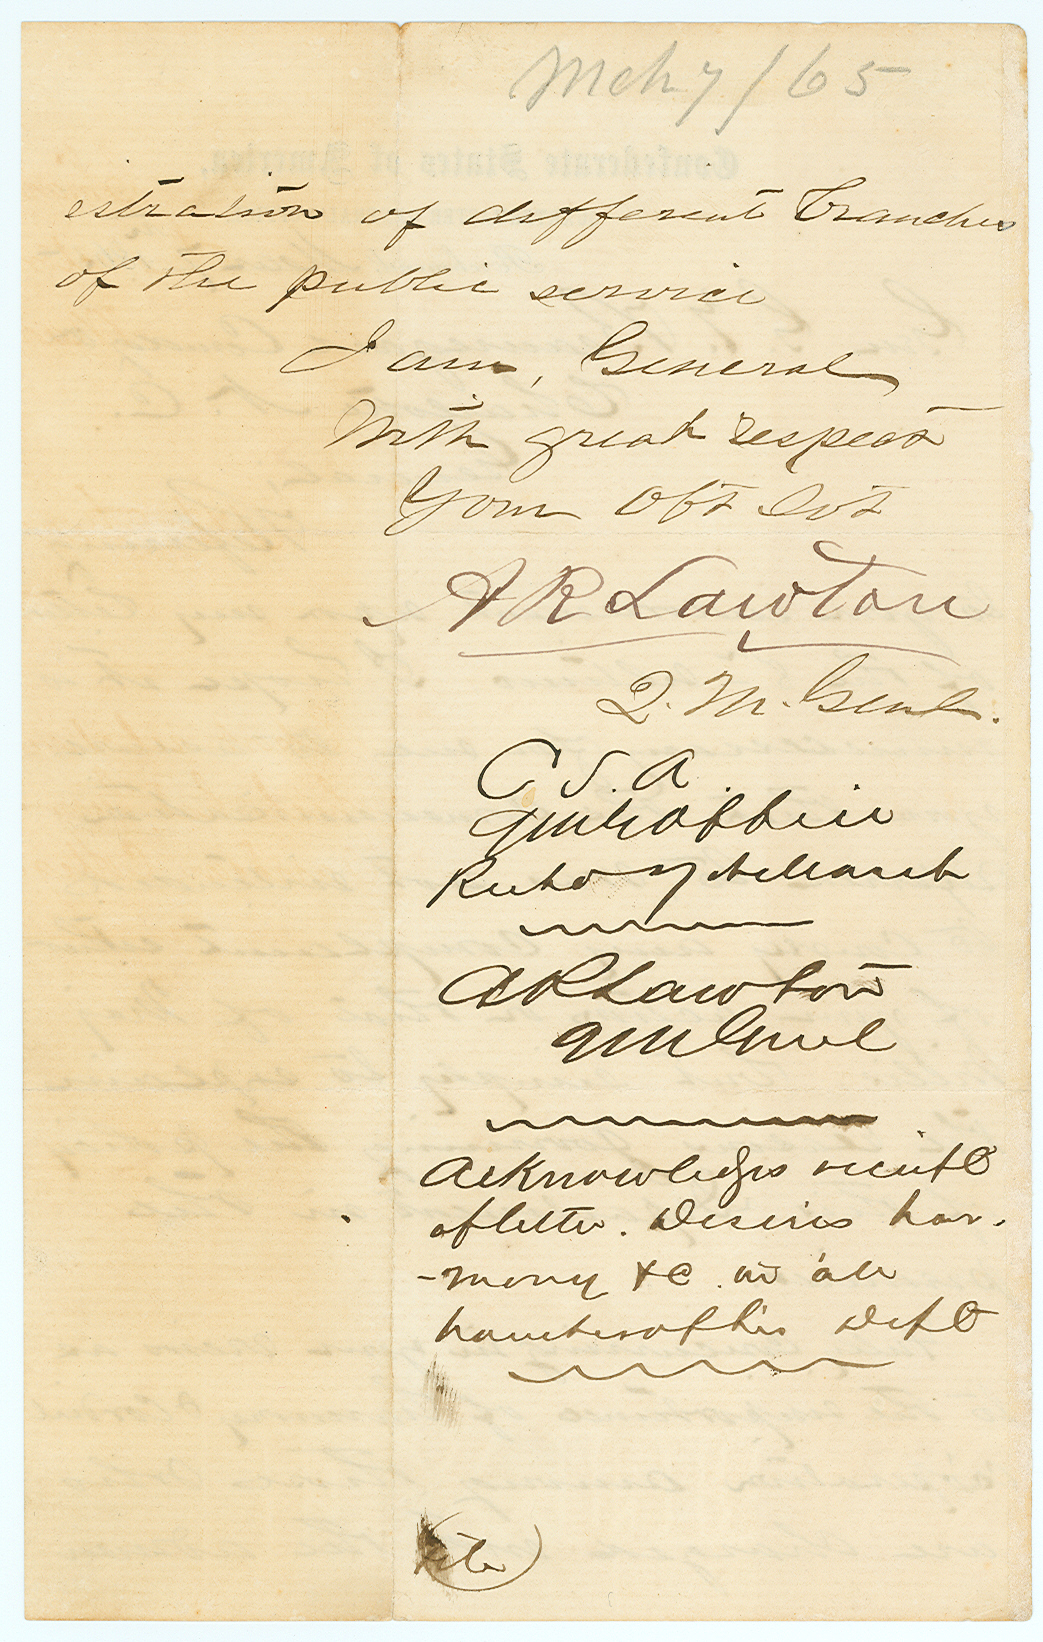 Mch 7/65
estration of different branches
of the public service
I am, General
With great respect
Your Obt Svt
A R Lawton
Q. M. Genl.
C. S. A.
QMG office
Richd 7th March
A R Lawton
QM Genl
Acknowledges receipt
of letter. Desires har-
-mony &c in all
branches of his Dept